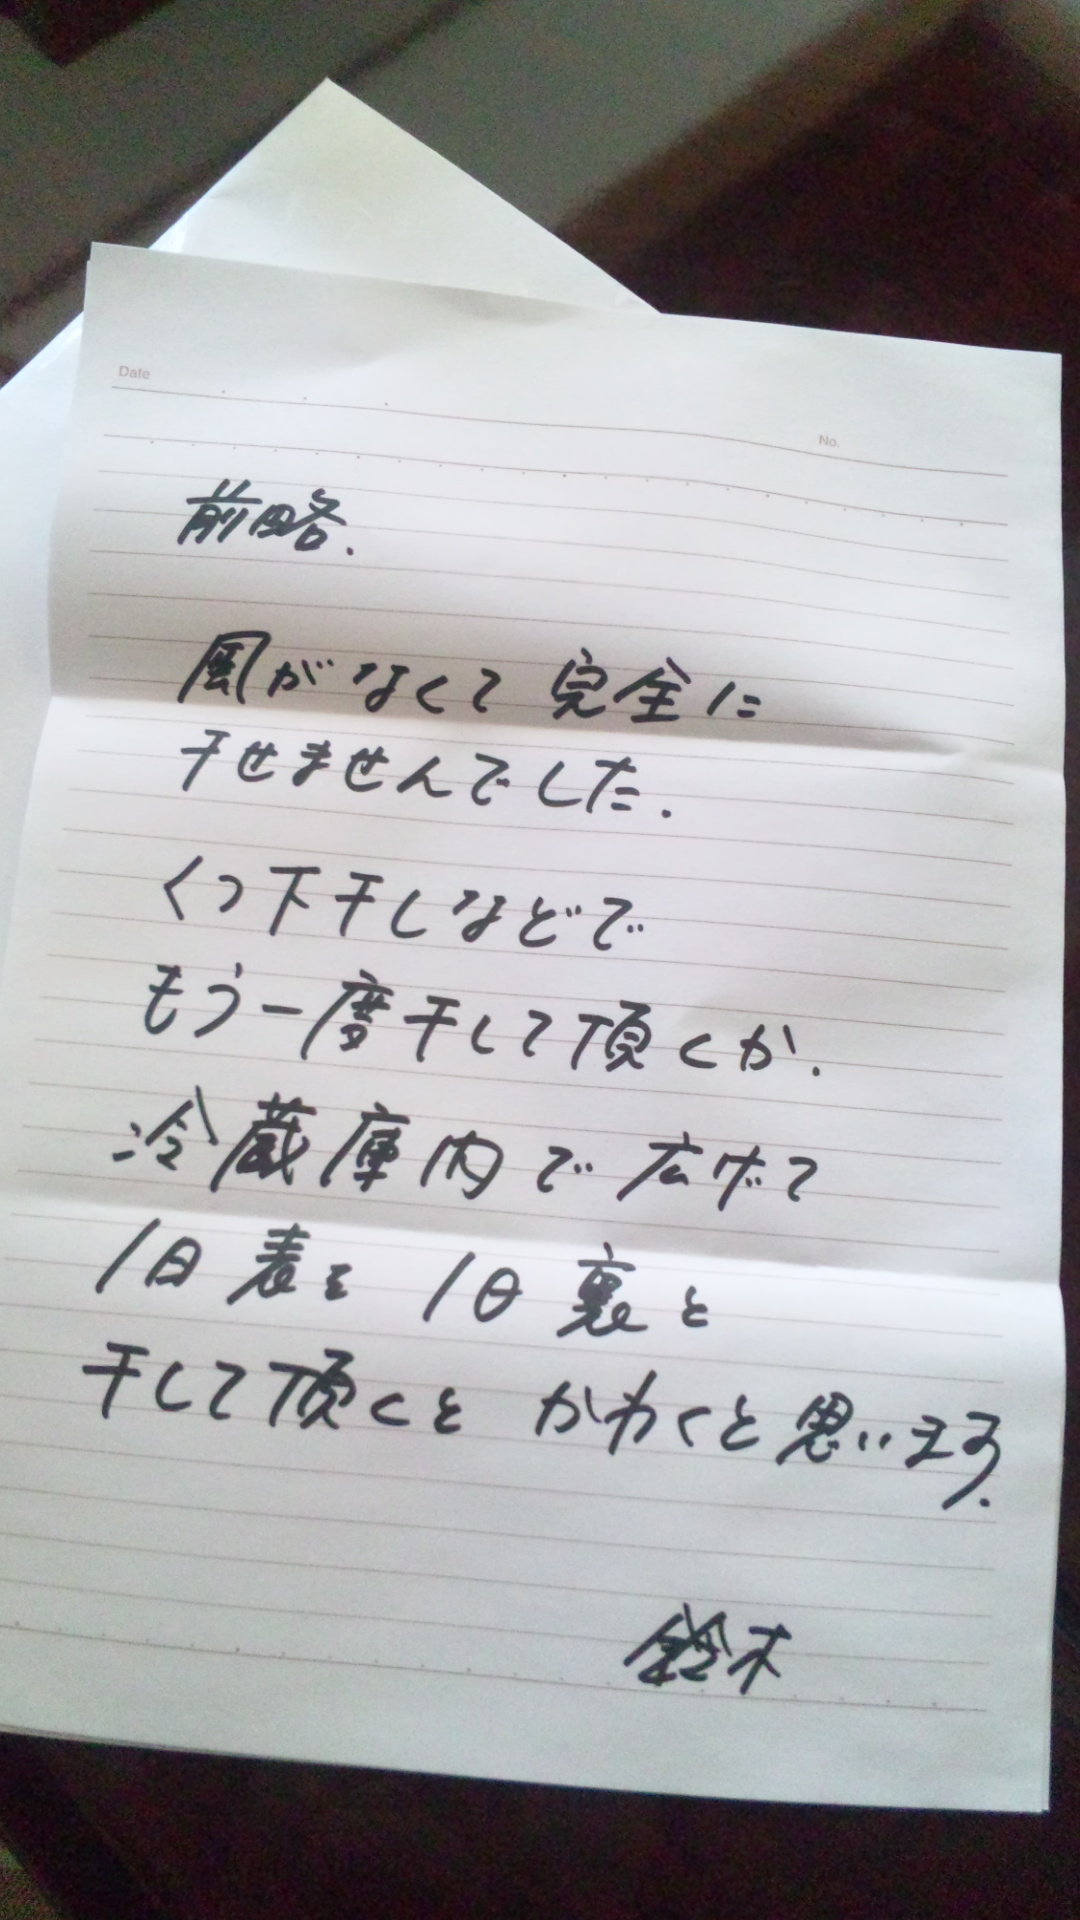 Date
No.
前略.
風がなくて 完全に
干せませんでした.
くつ下干しなどで
もう一度干して頂くか.
冷蔵庫内で広げて
1日表を 1日裏と
干して頂くと かわくと思います.
鈴木